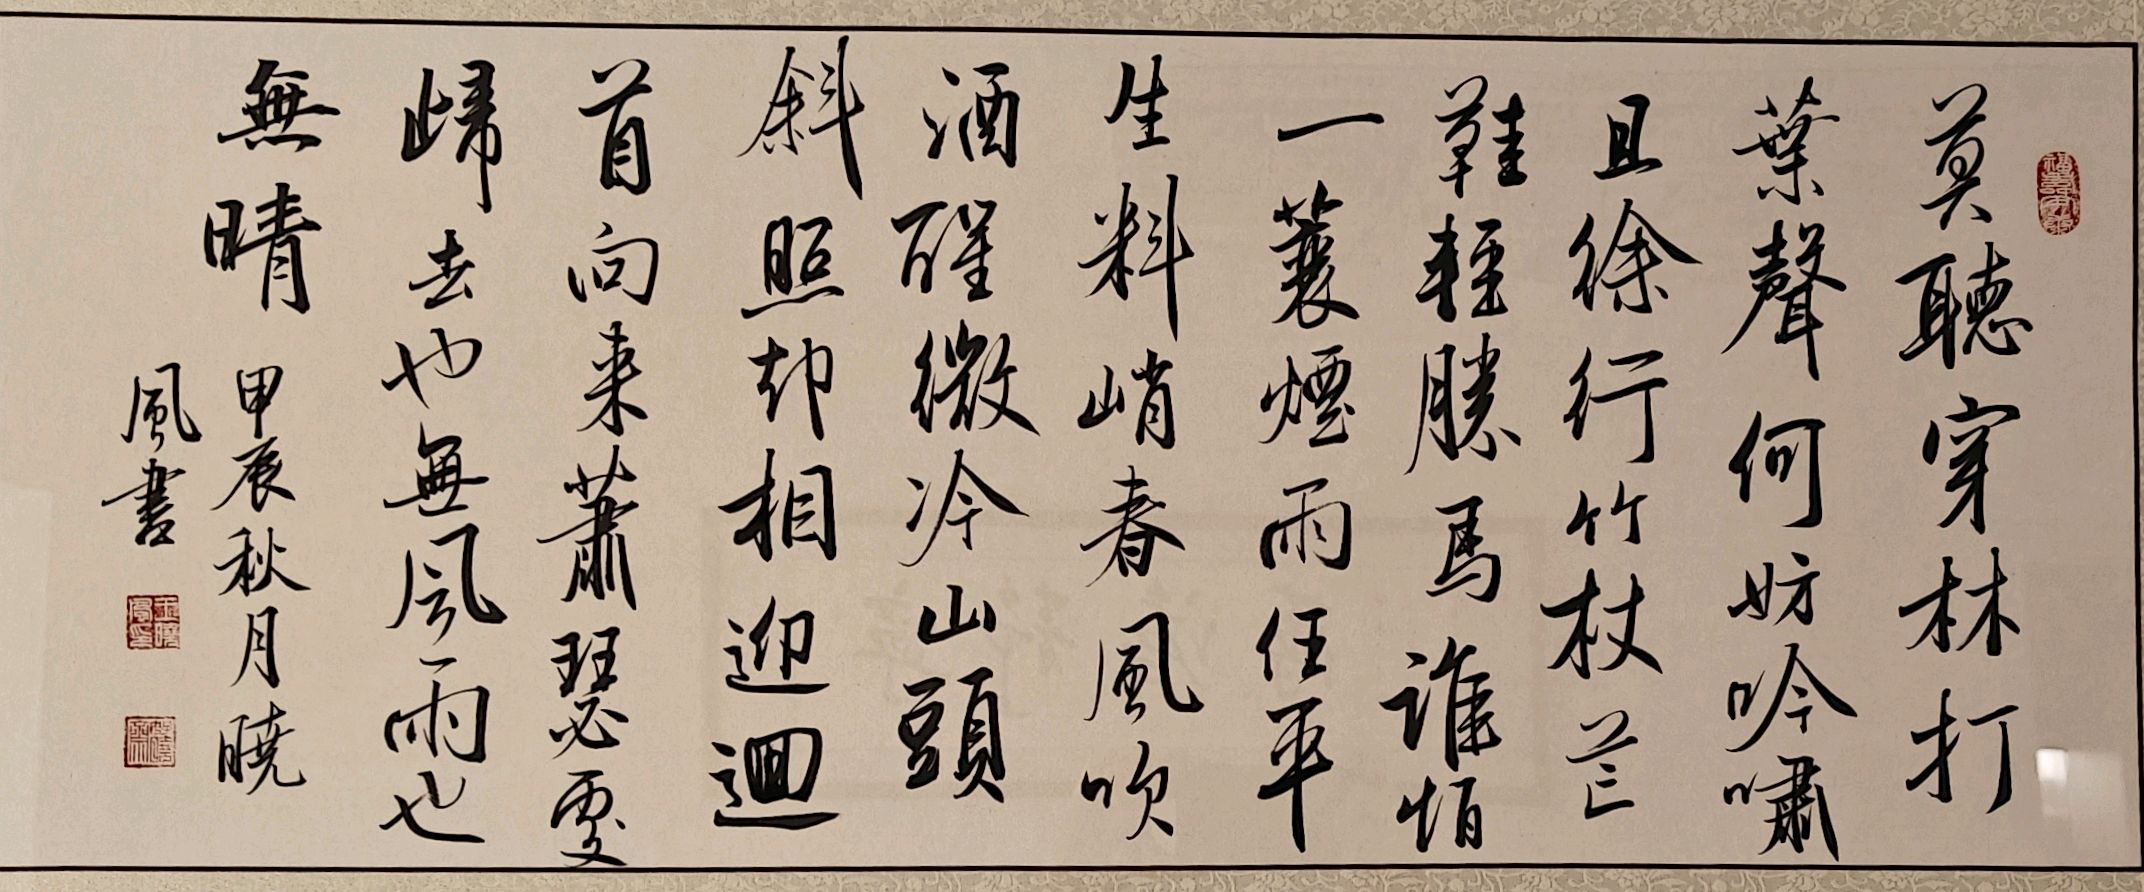 莫聽穿林打
葉聲何妨吟嘯
且徐行竹杖芒
鞋輕勝馬誰怕
一蓑煙雨任平
生料峭春風吹
酒醒微冷山頭
斜照却相迎迴
首向来蕭瑟處
歸去也無風雨也
無晴
甲辰秋月曉
風書